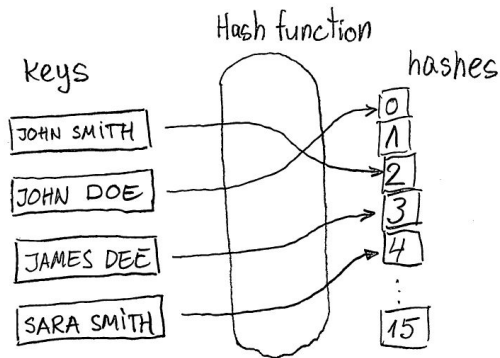 Hash function
keys
hashes
JOHN SMITH
JOHN DOE
JAMES DEE
SARA SMITH
0
1
2
3
4
⋮
15